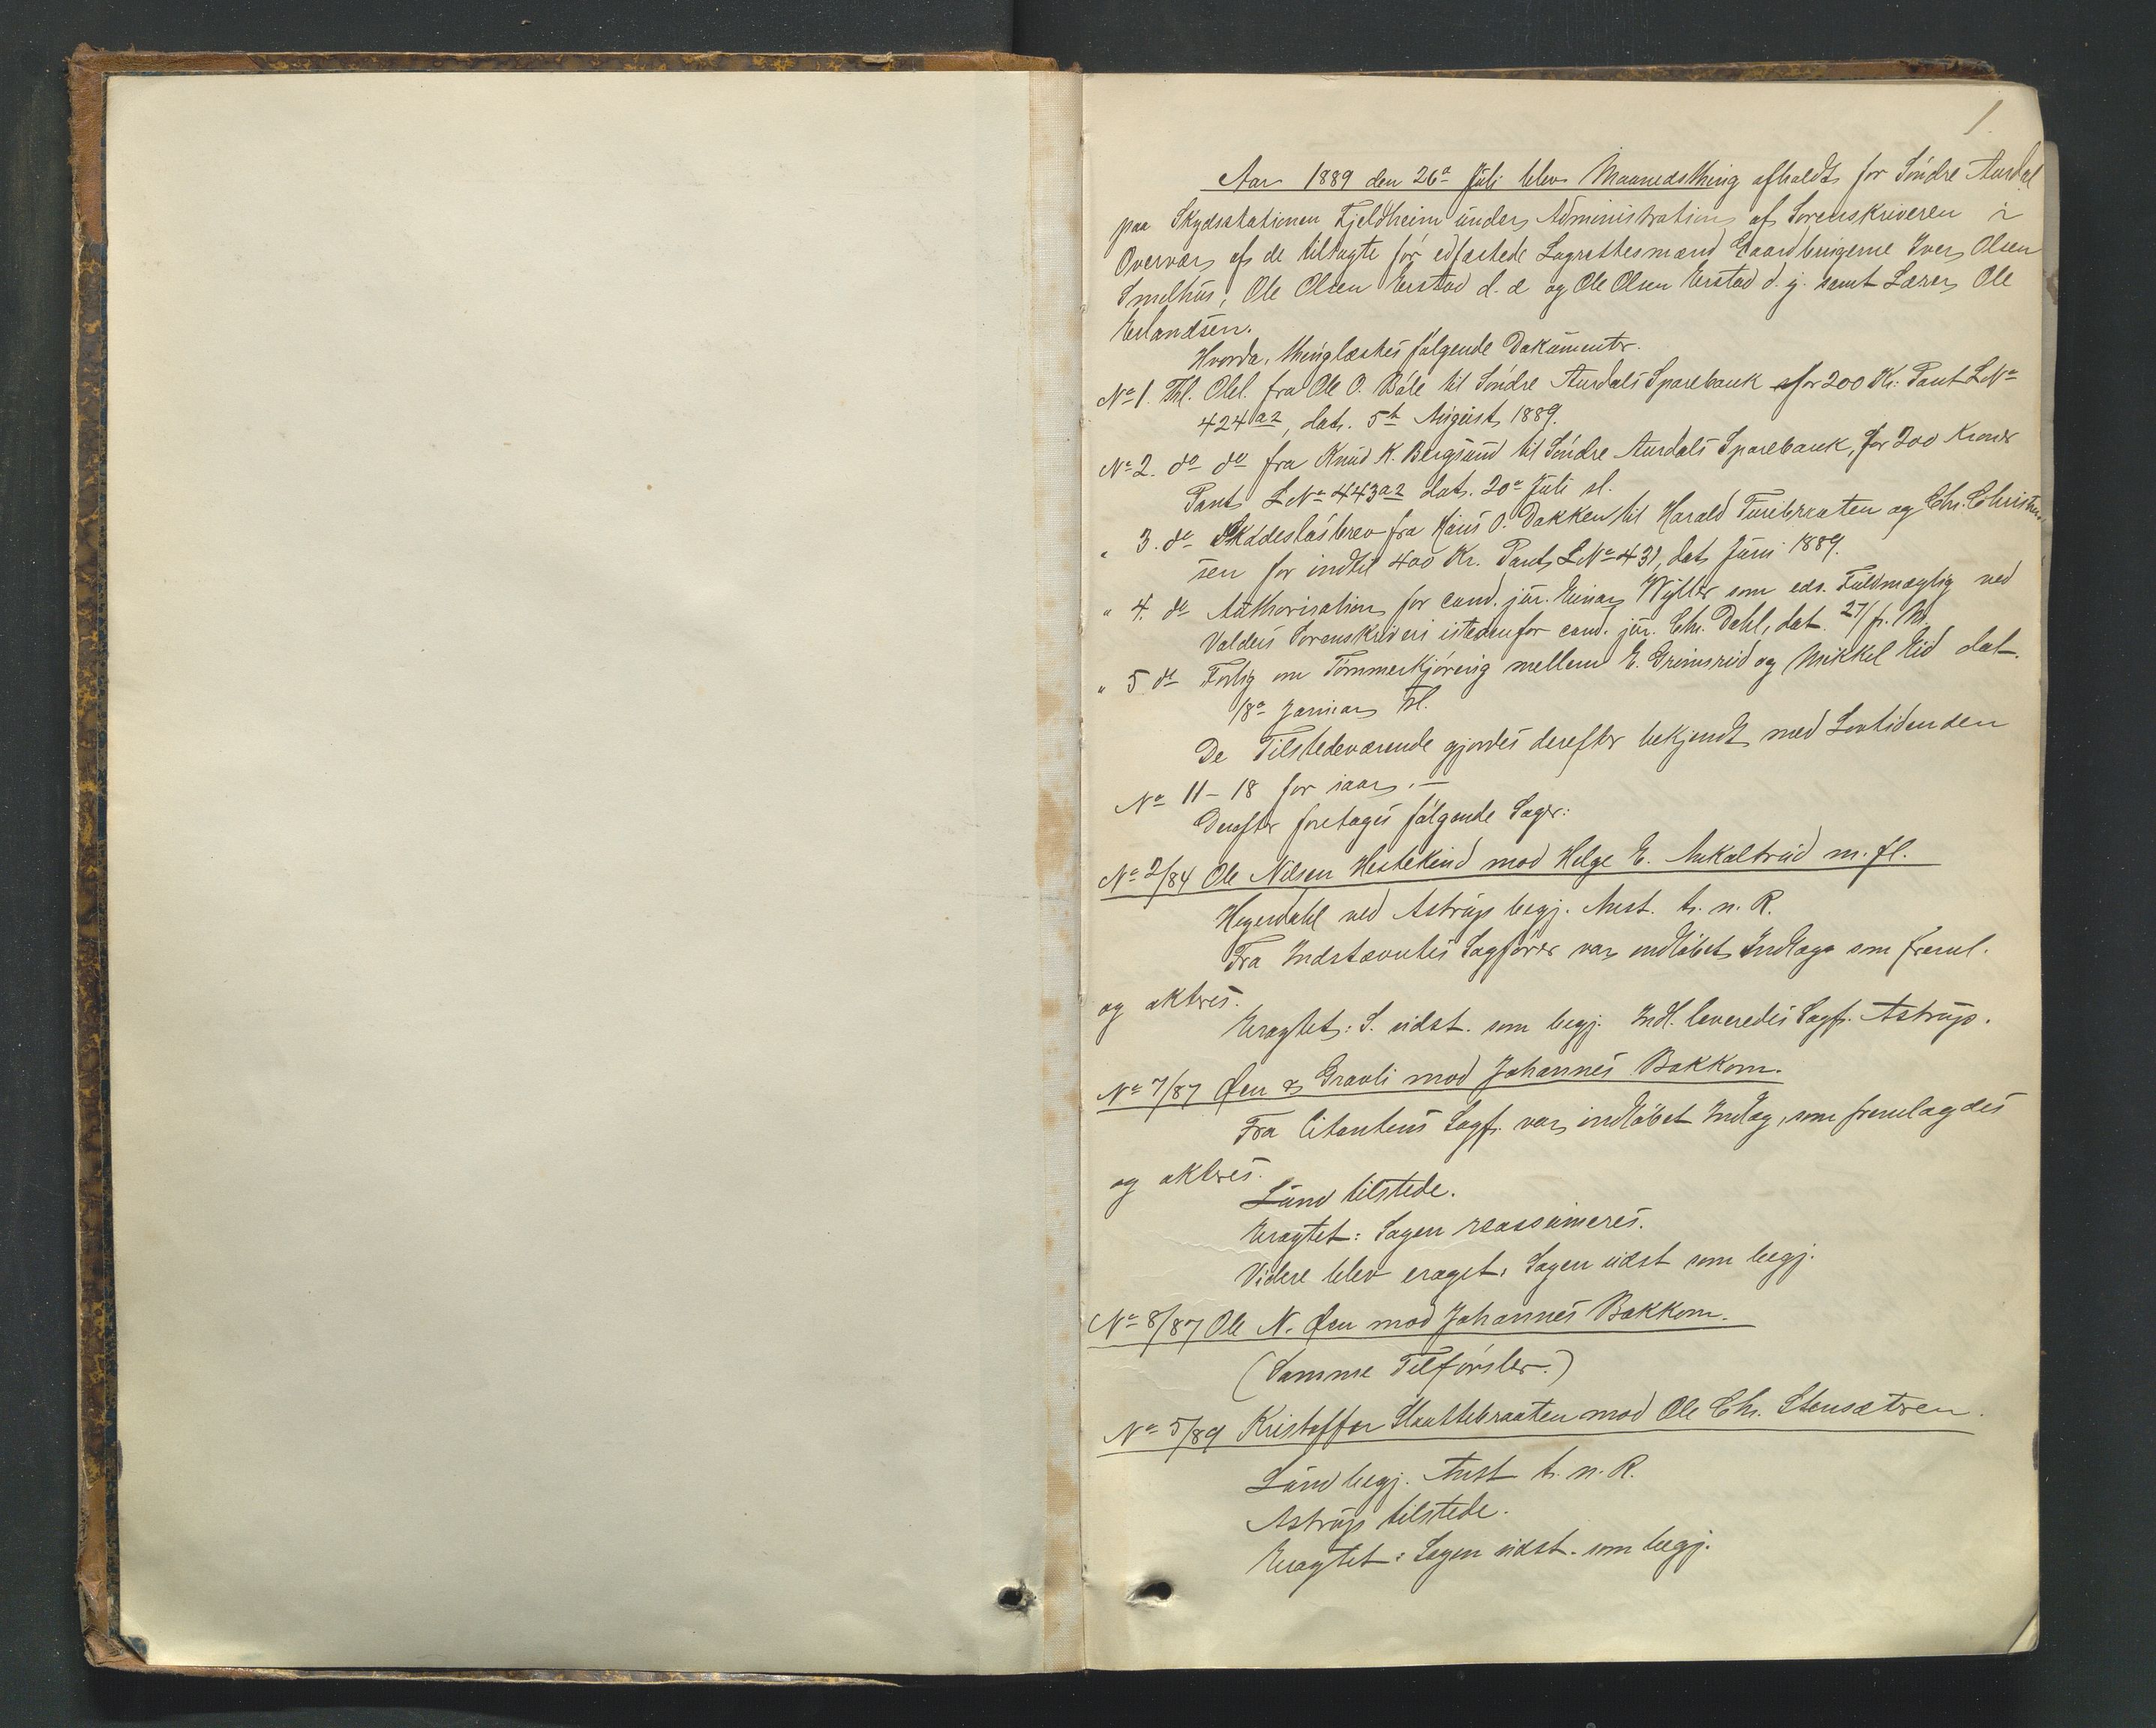 1.
Aar 1889 den 26de Juli blev Maanedsthing afholdt for Søndre Aurdal
paa Skydsstationen Fjeldheim under Administration af Sorenskriveren i
Overvær af de tiltagte før edfæstede Lagrettesmænd Gaardbrugerne Iver Olsen
Smedhus, Ole Olsen Erstad d. æ og Ole Olsen Erstad d. y. samt Lærer Ole
Erlandsen.
Hvorda, thinglæstes følgende Dokumenter.
No 1. Thl. Obl. fra Ole O. Bøle til Søndre Aurdals Sparebank for 200 Kr: Pant L No
424 a2, dat. 5te August 1889.
No 2. do do fra Knud K. Bergsund til Søndre Aurdals Sparebank, for 200 Kroner
Pant L No 443 a2 dat. 20de Juli sl.
" 3. do Skadesløsbrev fra Hans O. Dokken til Harald Turebraaten og Chr. Christian
sen for indtil 400 Kr. Pant L No 431, dat Juni 1889.
" 4. do Authorisation for cand. jur. Einar Wyller som eds. Fuldmægtig ved
Valders Sorenskriveri istedenfor cand. jur. Chr. Dahl, dat. 27/ f. M.
" 5 do Forlig om Tømmerkjøring mellem E. Grimsrud og Mikkel Lid dat.
18de Januar sl.
De Tilstedeværende gjordes derefter bekjendt med Lovtidenden
No 11 - 18 for iaar. —
Derefter foretages følgende Sager:
No 2/84 Ole Nilsen Hestekind mod Helge E. Mikaltrud m. fl.
Hegerdahl ved Astrup begj. Anst. t. n. R.
Fra Indstævntes Sagfører var indløbet Indlæg som freml.
og akteres.
Eragtet: S. udst. som begj. Indl. leveredes Sagf. Astrup.
No 7/87 Øen & Gravli mod Johannes Bakkom.
Fra Citantens Sagf. var indløbet Indlæg, som fremlagdes
og akteres.
Lund tilstede.
Eragtet: Sagen reassumeres.
Videre blev eraget: Sagen udst som begj.
No 8/87 Ole N. Øen mod Johannes Bakkom.
(Samme Tilførsler.)
No 5/89 Kristoffer Slaattebraaten mod Ole Chr. Stensætren.
Lund begj. Anst t. n. R.
Astrup tilstede.
Eragtet: Sagen udst. som begj.